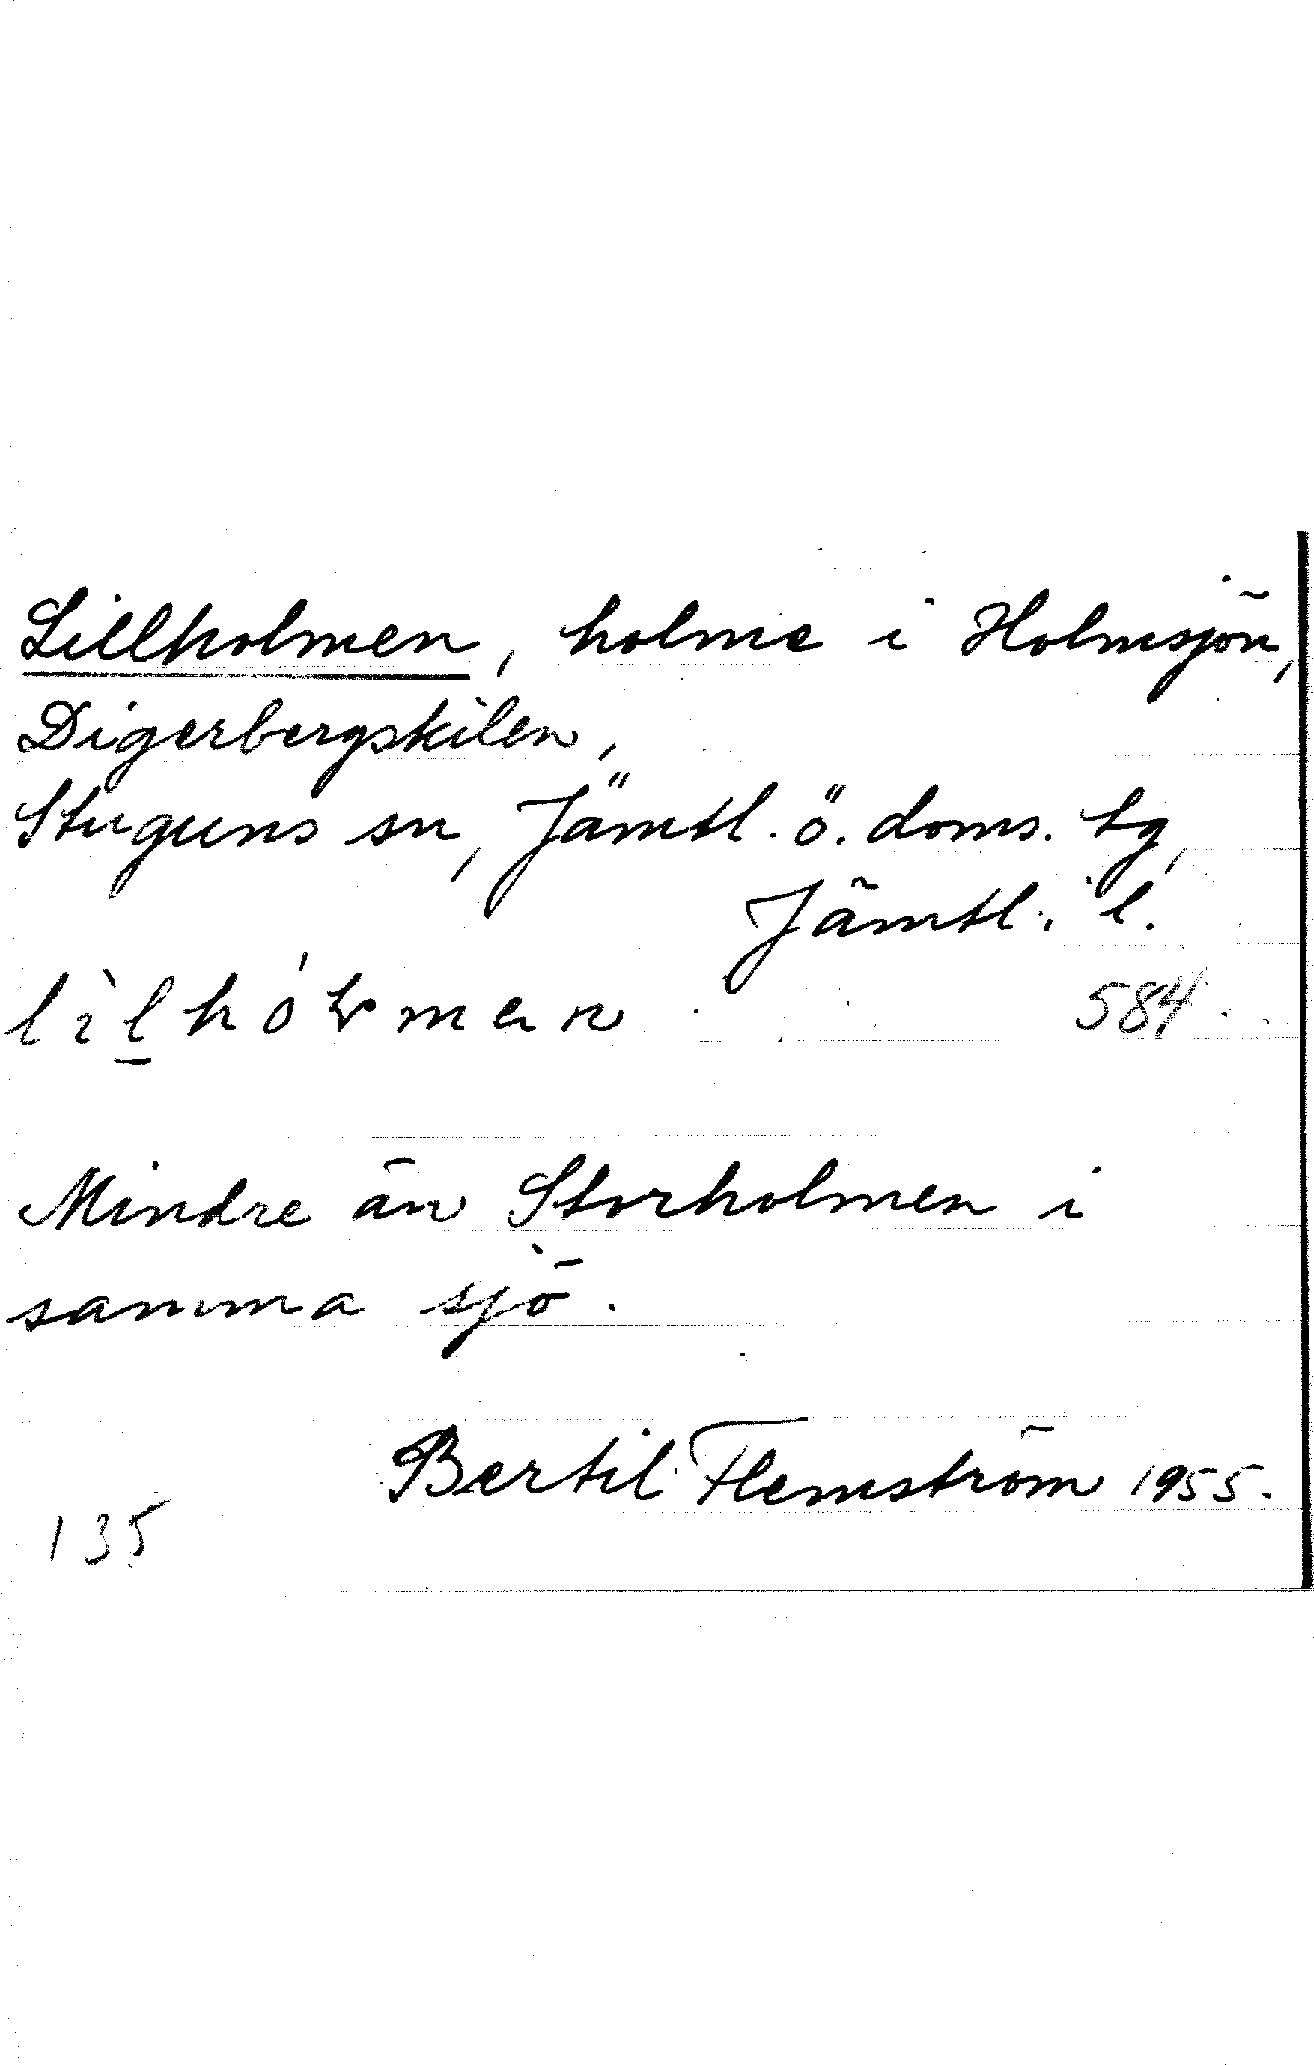 Lillholmen, holme i Holmsjön,
Digerbergskilen,
Stuguns sn, Jämtl. ö. doms. tg,
Jämtl. l.
584
Mindre än Storholmen i
samma sjö.
Bertil Flemström 1955.
135